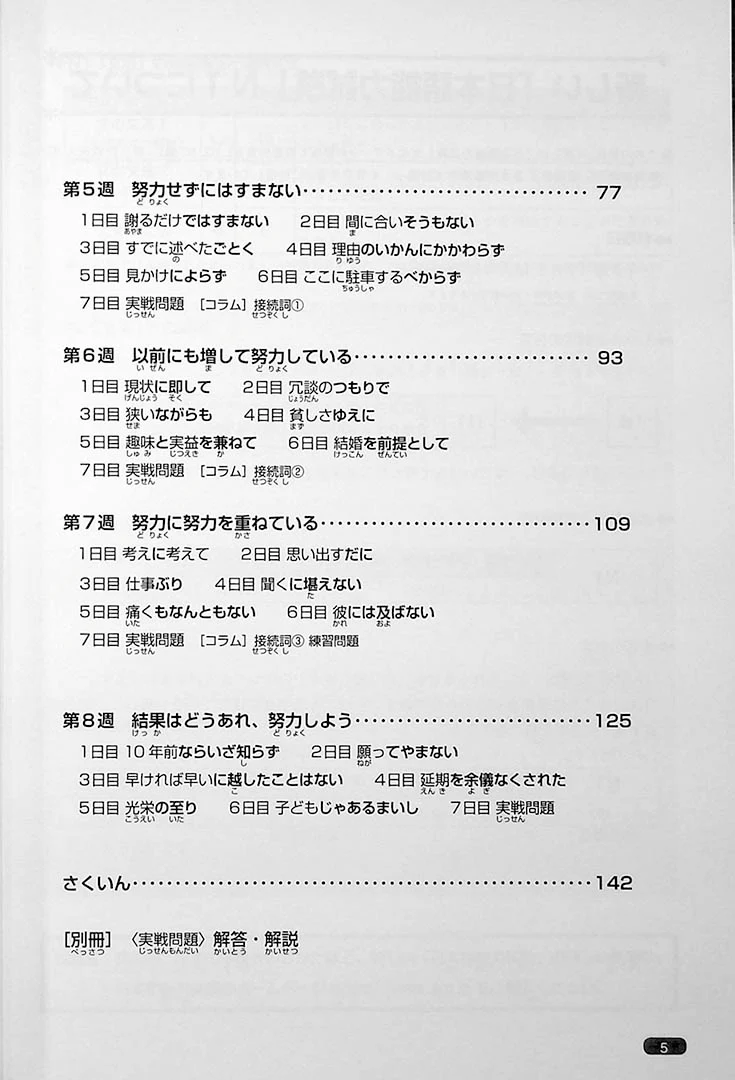 第5週 努力せずにはすまない……………………………… 77
1日目 謝るだけではすまない 2日目 間に合いそうもない
3日目 すでに述べたごとく 4日目 理由のいかんにかかわらず
5日目 見かけによらず 6日目 ここに駐車するべからず
7日目 実戦問題 [コラム] 接続詞①
第6週 以前にも増して努力している………………………… 93
1日目 現状に即して 2日目 冗談のつもりで
3日目 狭いながらも 4日目 貧しさゆえに
5日目 趣味と実益を兼ねて 6日目 結婚を前提として
7日目 実戦問題 [コラム] 接続詞②
第7週 努力に努力を重ねている……………………………109
1日目 考えに考えて 2日目 思い出すだに
3日目 仕事ぶり 4日目 聞くに堪えない
5日目 痛くもなんともない 6日目 彼には及ばない
7日目 実戦問題 [コラム] 接続詞③ 練習問題
第8週 結果はどうあれ、努力しよう…………………………125
1日目 10年前ならいざ知らず 2日目 願ってやまない
3日目 早ければ早いに越したことはない 4日目 延期を余儀なくされた
5日目 光栄の至り 6日目 子どもじゃあるまいし 7日目 実戦問題
さくいん……………………………………………………142
[別冊] 〈実戦問題〉 解答・解説
5